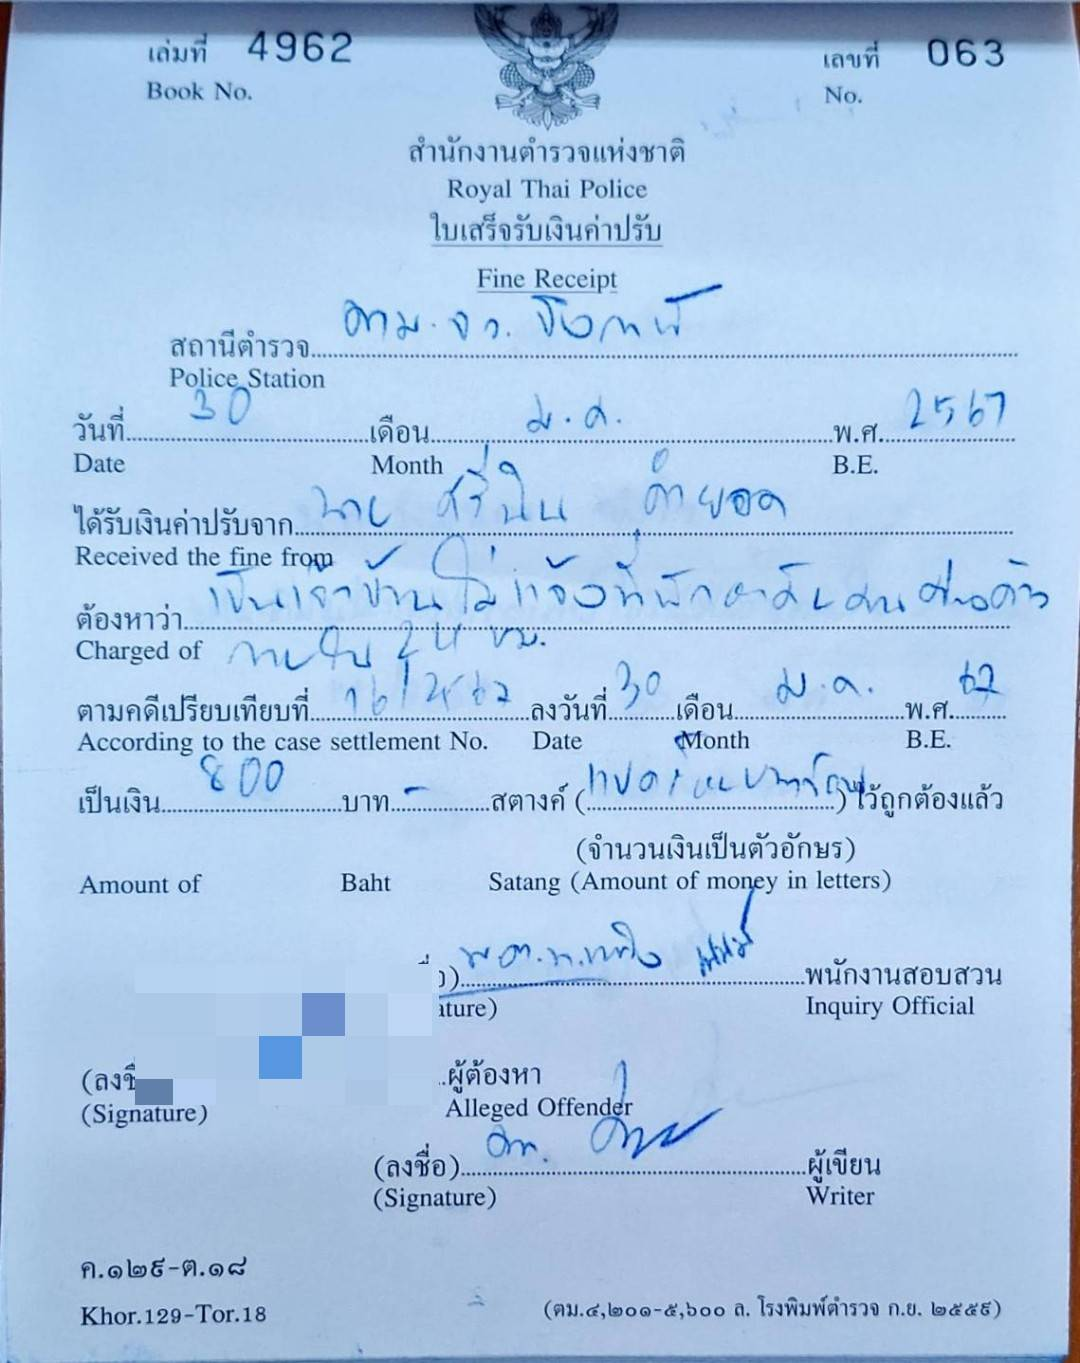 เล่มที่ 4962 เลขที่ 063
Book No. No.
สำนักงานตำรวจแห่งชาติ
Royal Thai Police
ใบเสร็จรับเงินค่าปรับ
Fine Receipt
สถานีตำรวจ ตม.จว. บึงกาฬ
Police Station
วันที่ 30 เดือน ม.ค. พ.ศ. 2567
Date Month B.E.
ได้รับเงินค่าปรับจาก นาย
Received the fine from
ต้องหาว่า เป็นเจ้าบ้านไม่แจ้งที่พักอาศัยคนต่างด้าว
Charged of ภายใน 24 ชม.
ตามคดีเปรียบเทียบที่ 16/2567 ลงวันที่ 30 เดือน ม.ค. พ.ศ. 67
According to the case settlement No. Date Month B.E.
เป็นเงิน 800 บาท - สตางค์ (แปดร้อยบาทถ้วน) ไว้ถูกต้องแล้ว
(จำนวนเงินเป็นตัวอักษร)
Amount of Baht Satang (Amount of money in letters)
พนักงานสอบสวน
Inquiry Official
(ลงชื่ ผู้ต้องหา
(Signature) Alleged Offender
(ลงชื่อ) ผู้เขียน
(Signature) Writer
ค.๑๒๙-ต.๑๘
Khor.129-Tor.18 (ตม.๔,๒๐๑-๕,๖๐๐ ล. โรงพิมพ์ตำรวจ ก.ย. ๒๕๕๙)